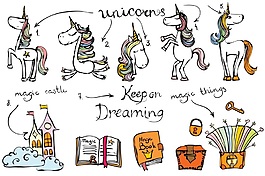 unicorns
1.
2.
3.
4.
5.
magic castle
Keep on
Dreaming
magic things
7.
8.
Magic
Magic
Book